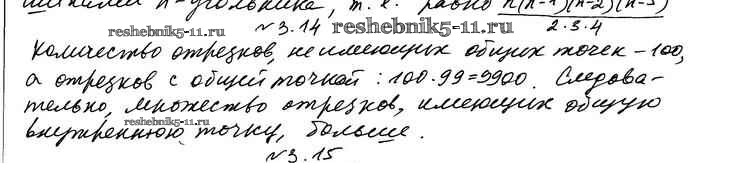 шинами n-угольника, т. е. равно n(n-1)(n-2)(n-3)
2·3·4
№3.14
reshebnik5-11.ru
Количество отрезков, не имеющих общих точек – 100,
а отрезков с общей точкой : 100·99=9900. Следова-
тельно, множество отрезков, имеющих общую
внутреннюю точку, больше.
reshebnik5-11.ru
№3.15